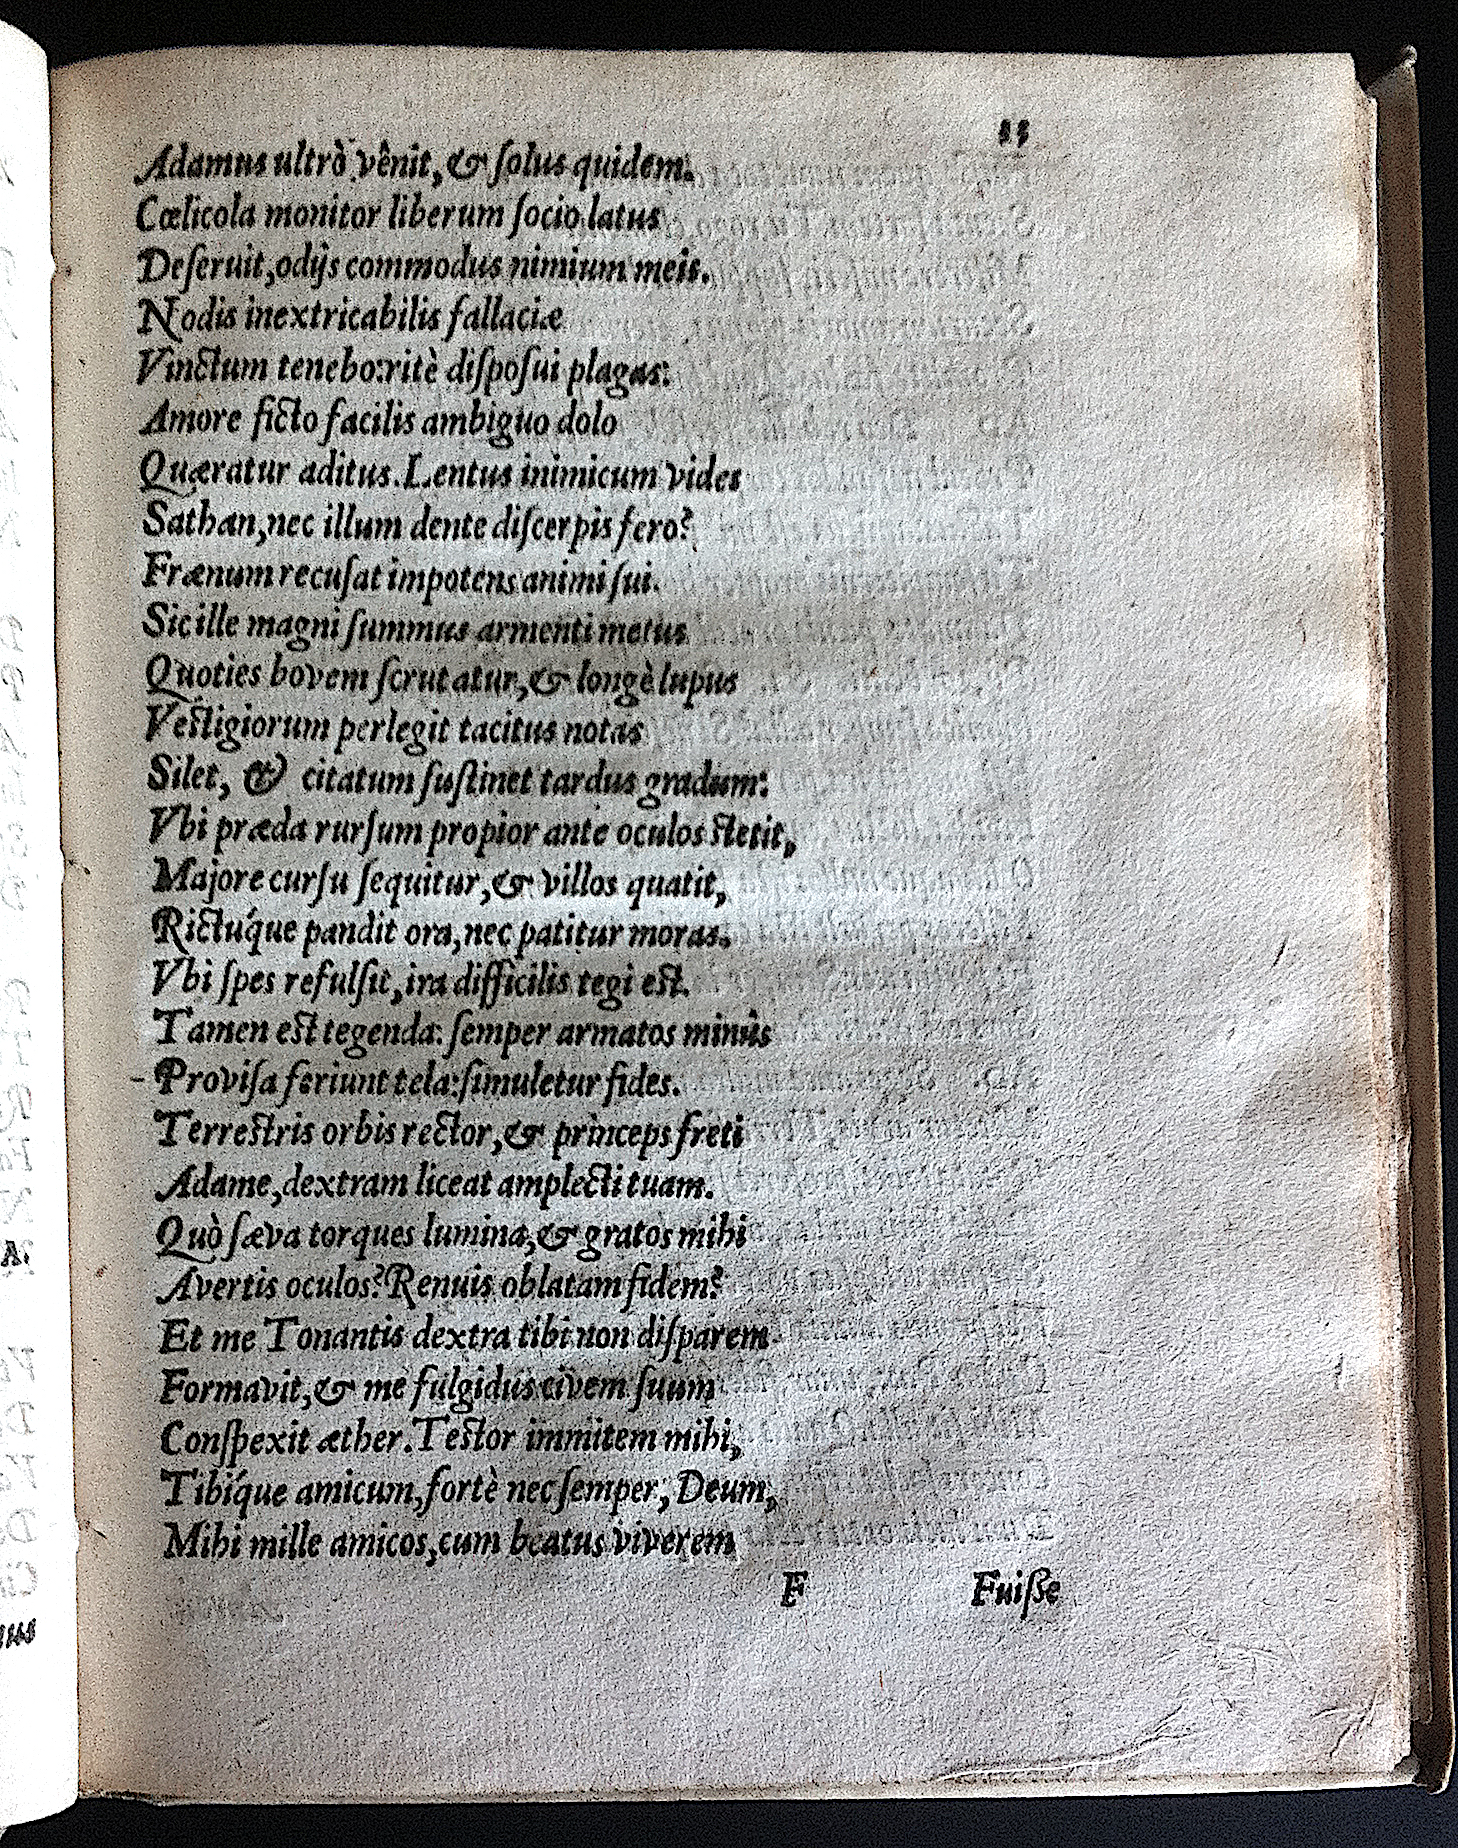 Adamus ultrò vênit, & ſolus quidem.
Cœlicola monitor liberum ſocio latus
Deſeruit, odijs commodus nimium meis.
Nodis inextricabilis fallaciæ
Vinctum tenebo: ritè diſpoſui plagas:
Amore ficto facilis ambiguo dolo
Quæratur aditus. Lentus inimicum vides
Sathan, nec illum dente diſcerpis fero?
Frænum recuſat impotens animi ſui.
Sic ille magni ſummus armenti metus
Quoties bovem ſcrutatur, & longè lupus
Veſtigiorum perlegit tacitus notas
Silet, & citatum ſuſtinet tardus gradum:
Vbi præda rurſum propior ante oculos ſtetit,
Majore curſu ſequitur, & villos quatit,
Rictúque pandit ora, nec patitur moras.
Vbi ſpes refulſit, ira difficilis tegi eſt.
Tamen eſt tegenda: ſemper armatos minùs
Proviſa feriunt tela: ſimuletur fides.
Terreſtris orbis rector, & prínceps freti
Adame, dextram liceat amplecti tuam.
Quò ſæva torques lumina, & gratos mihi
Avertis oculos? Renuis oblatam fidem?
Et me Tonantis dextra tibi non diſparem
Formavit, & me fulgidus civem ſuum
Conſpexit æther. Teſtor immitem mihi,
Tibíque amicum, fortè nec ſemper, Deum,
Mihi mille amicos, cum beatus viverem
F Fuiſſe